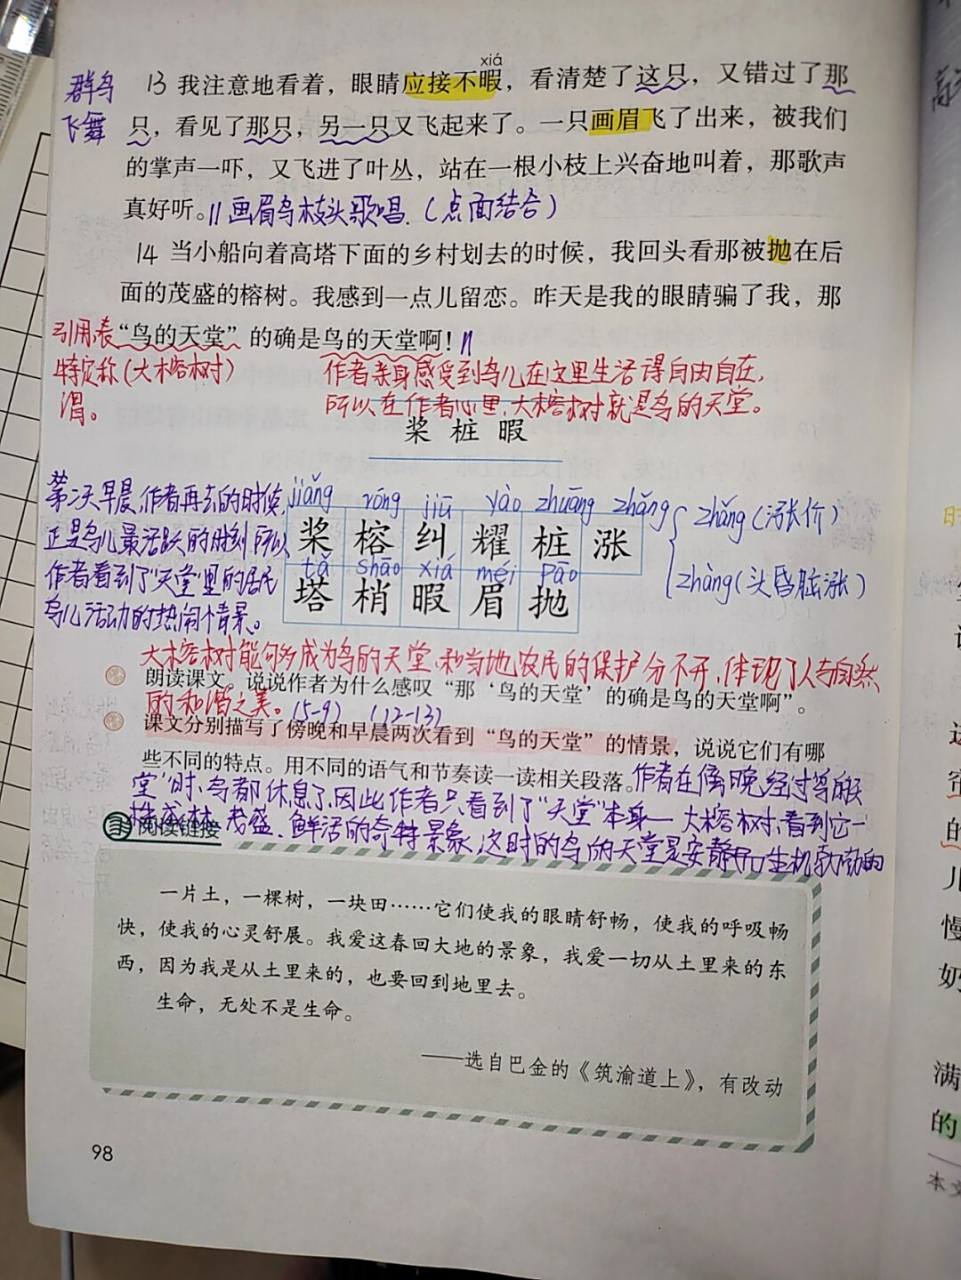 xiá
群鸟
飞舞
13 我注意地看着，眼睛应接不暇，看清楚了这只，又错过了那
只，看见了那只，另一只又飞起来了。一只画眉飞了出来，被我们
的掌声一吓，又飞进了叶丛，站在一根小枝上兴奋地叫着，那歌声
真好听。// 画眉鸟枝头歌唱.（点面结合）
14 当小船向着高塔下面的乡村划去的时候，我回头看那被抛在后
面的茂盛的榕树。我感到一点儿留恋。昨天是我的眼睛骗了我，那
“鸟的天堂”的确是鸟的天堂啊！//
引用.表
特定称（大榕树）
谓。
作者亲身感受到鸟儿在这里生活得自由自在,
所以在作者心里,大榕树就是鸟的天堂。
桨 桩 暇
第二天早晨,作者再去的时候,
正是鸟儿最活跃的时刻,所以
作者看到了“天堂”里的居民
鸟儿活动的热闹情景。
jiǎng róng jiū yào zhuāng zhǎng
桨 榕 纠 耀 桩 涨
tǎ shāo xiá méi pāo
塔 梢 暇 眉 抛
zhǎng（涨价）
zhàng（头昏脑涨）
大榕树能够成为鸟的天堂,和当地农民的保护分不开,体现了人与自然
的和谐之美。
朗读课文。说说作者为什么感叹“那‘鸟的天堂’的确是鸟的天堂啊”。
(5-9) (12-13)
课文分别描写了傍晚和早晨两次看到“鸟的天堂”的情景，说说它们有哪
些不同的特点。用不同的语气和节奏读一读相关段落。
作者在傍晚经过“鸟的天
堂”时,鸟都休息了,因此作者只看到了“天堂”本身—大榕树,看到它一
茂盛、鲜活的奇特景象,这时的鸟的天堂是安静
阅读链接
一片土，一棵树，一块田……它们使我的眼睛舒畅，使我的呼吸畅
快，使我的心灵舒展。我爱这春回大地的景象，我爱一切从土里来的东
西，因为我是从土里来的，也要回到地里去。
生命，无处不是生命。
——选自巴金的《筑渝道上》，有改动
98
满
的